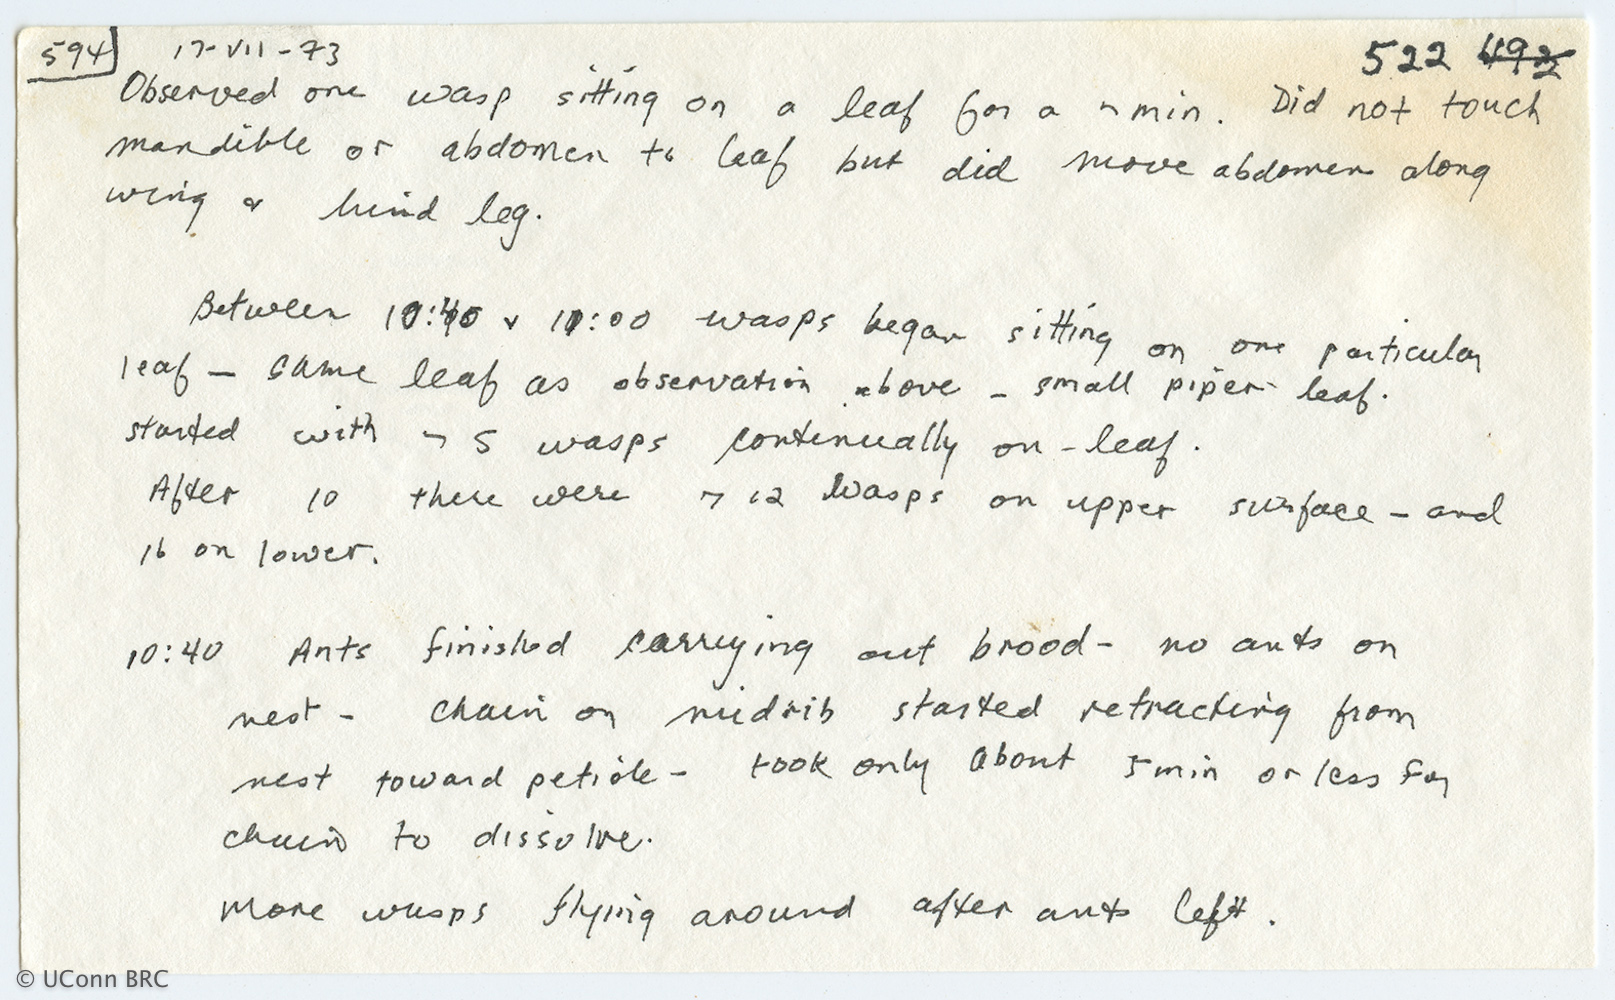 594 17-VII-73 522 492
Observed one wasp sitting on a leaf for a ~ min. Did not touch
mandible or abdomen to leaf but did move abdomen along
wing & hind leg.
Between 10:40 & 11:00 wasps began sitting on one particular
leaf - same leaf as observation above - small piper leaf.
started with ~ 5 wasps continually on - leaf.
After 10 there were ~ 12 wasps on upper surface - and
16 on lower.
10:40 Ants finished carrying out brood - no ants on
nest - chain on midrib started retracting from
nest toward petiole - took only about 5 min or less for
chain to dissolve.
More wasps flying around after ants left.
© UConn BRC